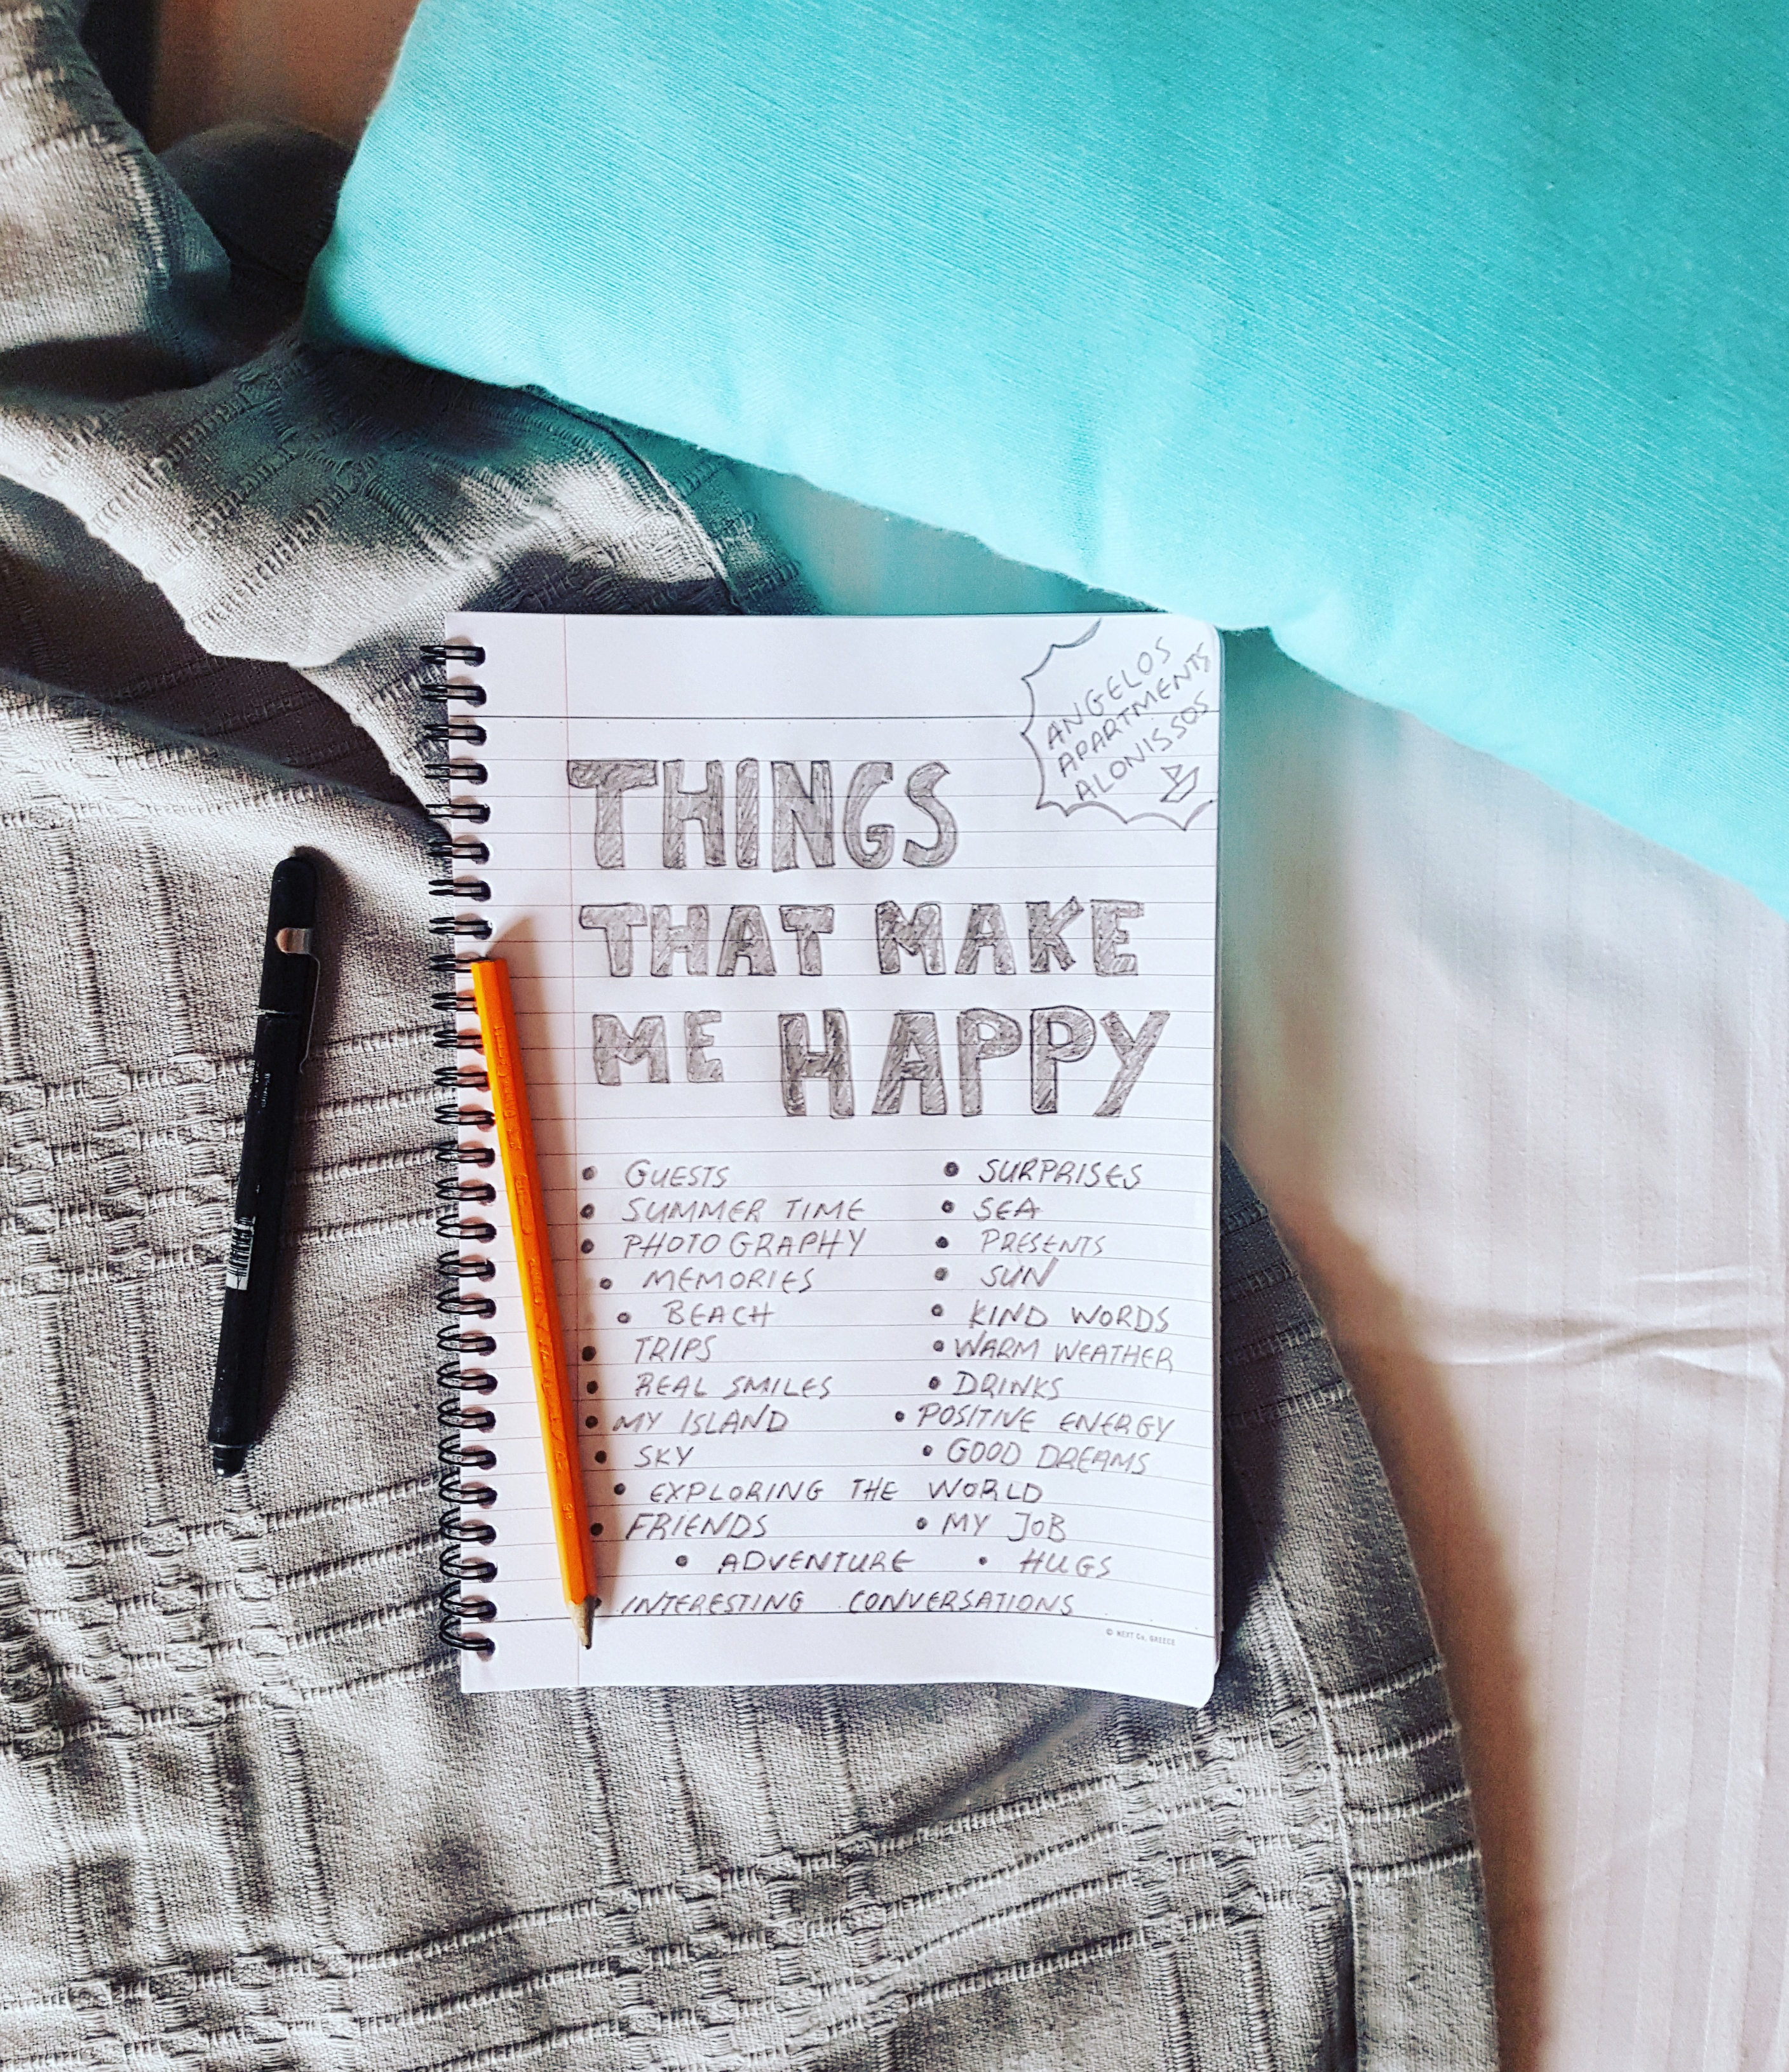 ANGELOS
APARTMENTS
ALONISSOS
THINGS
THAT MAKE
ME HAPPY
• GUESTS • SURPRISES
• SUMMER TIME • SEA
• PHOTOGRAPHY • PRESENTS
• MEMORIES • SUN
• BEACH • KIND WORDS
• TRIPS • WARM WEATHER
• REAL SMILES • DRINKS
• MY ISLAND • POSITIVE ENERGY
• SKY • GOOD DREAMS
• EXPLORING THE WORLD
• FRIENDS • MY JOB
• ADVENTURE • HUGS
• INTERESTING CONVERSATIONS
© NEXT Co, GREECE